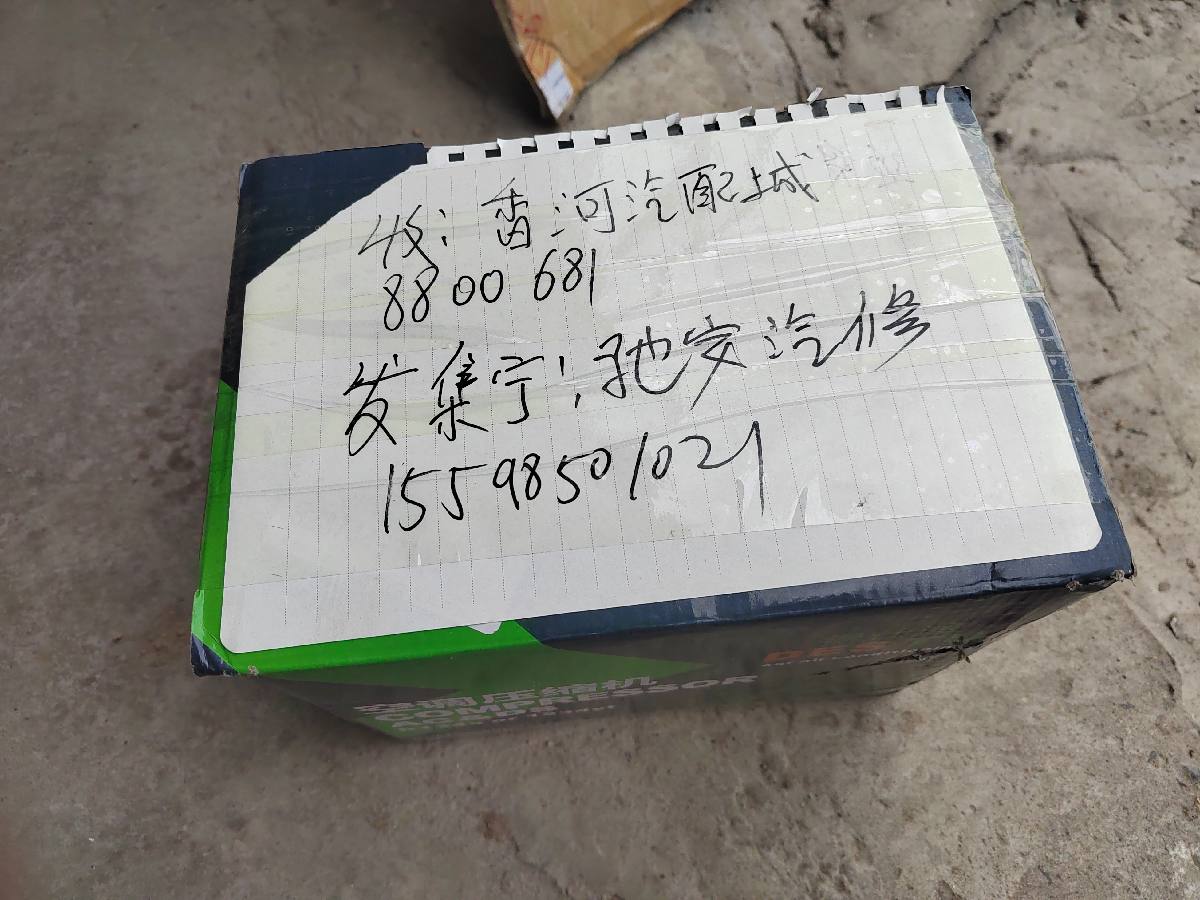 收:香河汽配城
8800681
发集宁:驰安汽修
15598501021
空调压缩机
COMPRESSOR